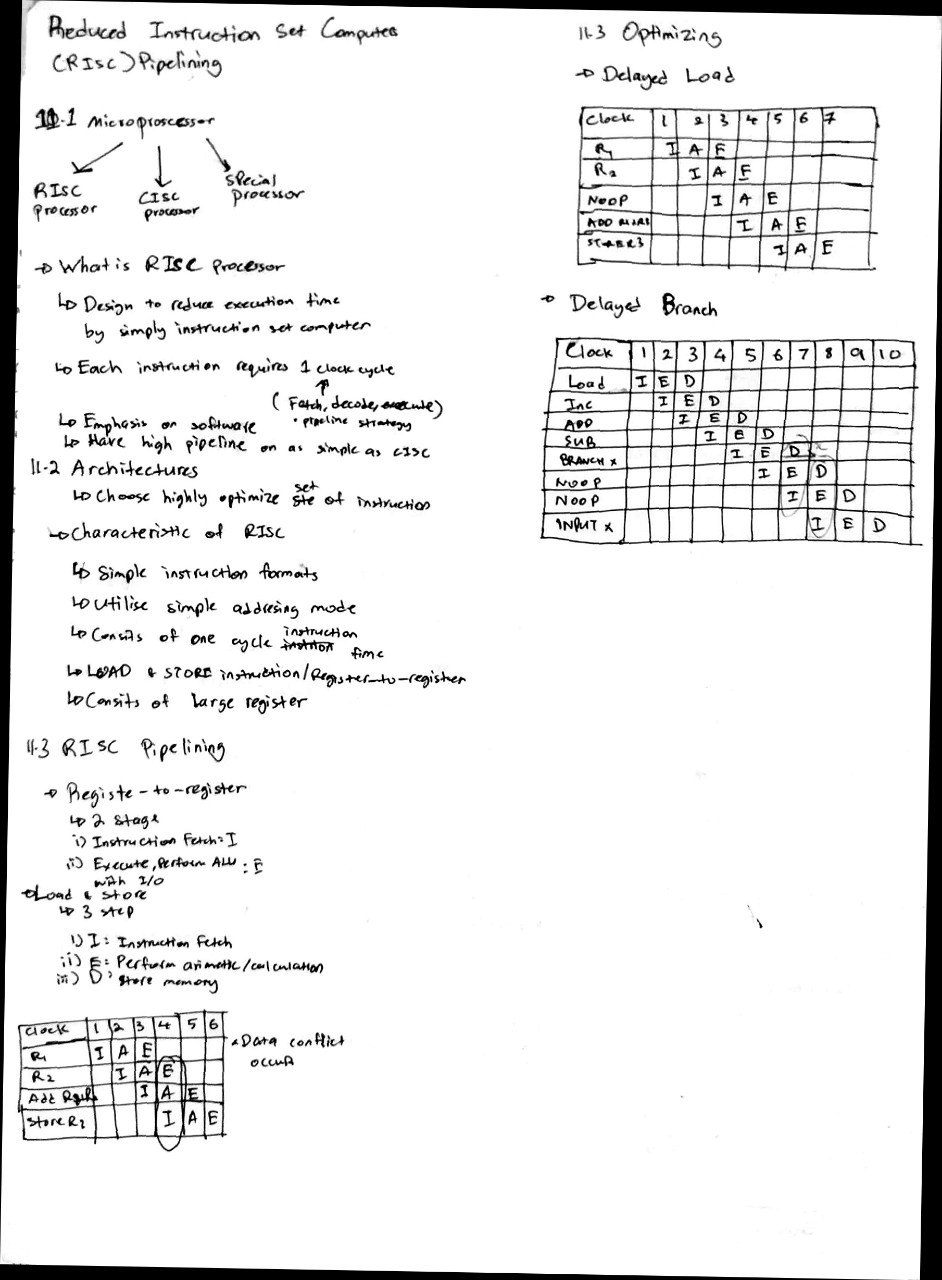 Reduced Instruction Set Computer
(RISC) Pipelining
11.1 Microproscessor
RISC
processor
CISC
processor
special
processor
→ What is RISC processor
↳ Design to reduce execution time
by simply instruction set computer
↳ Each instruction requires 1 clock cycle
(Fetch, decode, execute)
• pipeline strategy
↳ Emphasis on software
↳ Have high pipeline on as simple as CISC
11.2 Architectures
↳ Choose highly optimize set of instruction
→ Characteristic of RISC
↳ Simple instruction formats
↳ Utilise simple addresing mode
↳ Consits of one cycle instruction time
↳ LOAD & STORE instruction/Register-to-register
↳ Consits of large register
11.3 RISC Pipelining
→ Registe-to-register
↳ 2 stage
i) Instruction Fetch: I
ii) Execute, Perform ALU : E
with I/O
→ Load & store
↳ 3 step
i) I: Instruction Fetch
ii) E: Perform arimetic/calculation
iii) D: Store memory
Clock 1 2 3 4 5 6
R1 I A E
R2 I A E
Add I A E
Store R3 I A E
• Data conflict
occur
11.3 Optimizing
→ Delayed Load
Clock 1 2 3 4 5 6 7
R1 I A E
R2 I A E
NOOP I A E
ADD I A E
STORER3 I A E
→ Delayed Branch
Clock 1 2 3 4 5 6 7 8 9 10
Load I E D
Inc I E D
ADD I E D
SUB I E D
BRANCH X I E D
NOOP I E D
NOOP I E D
INPUT X I E D